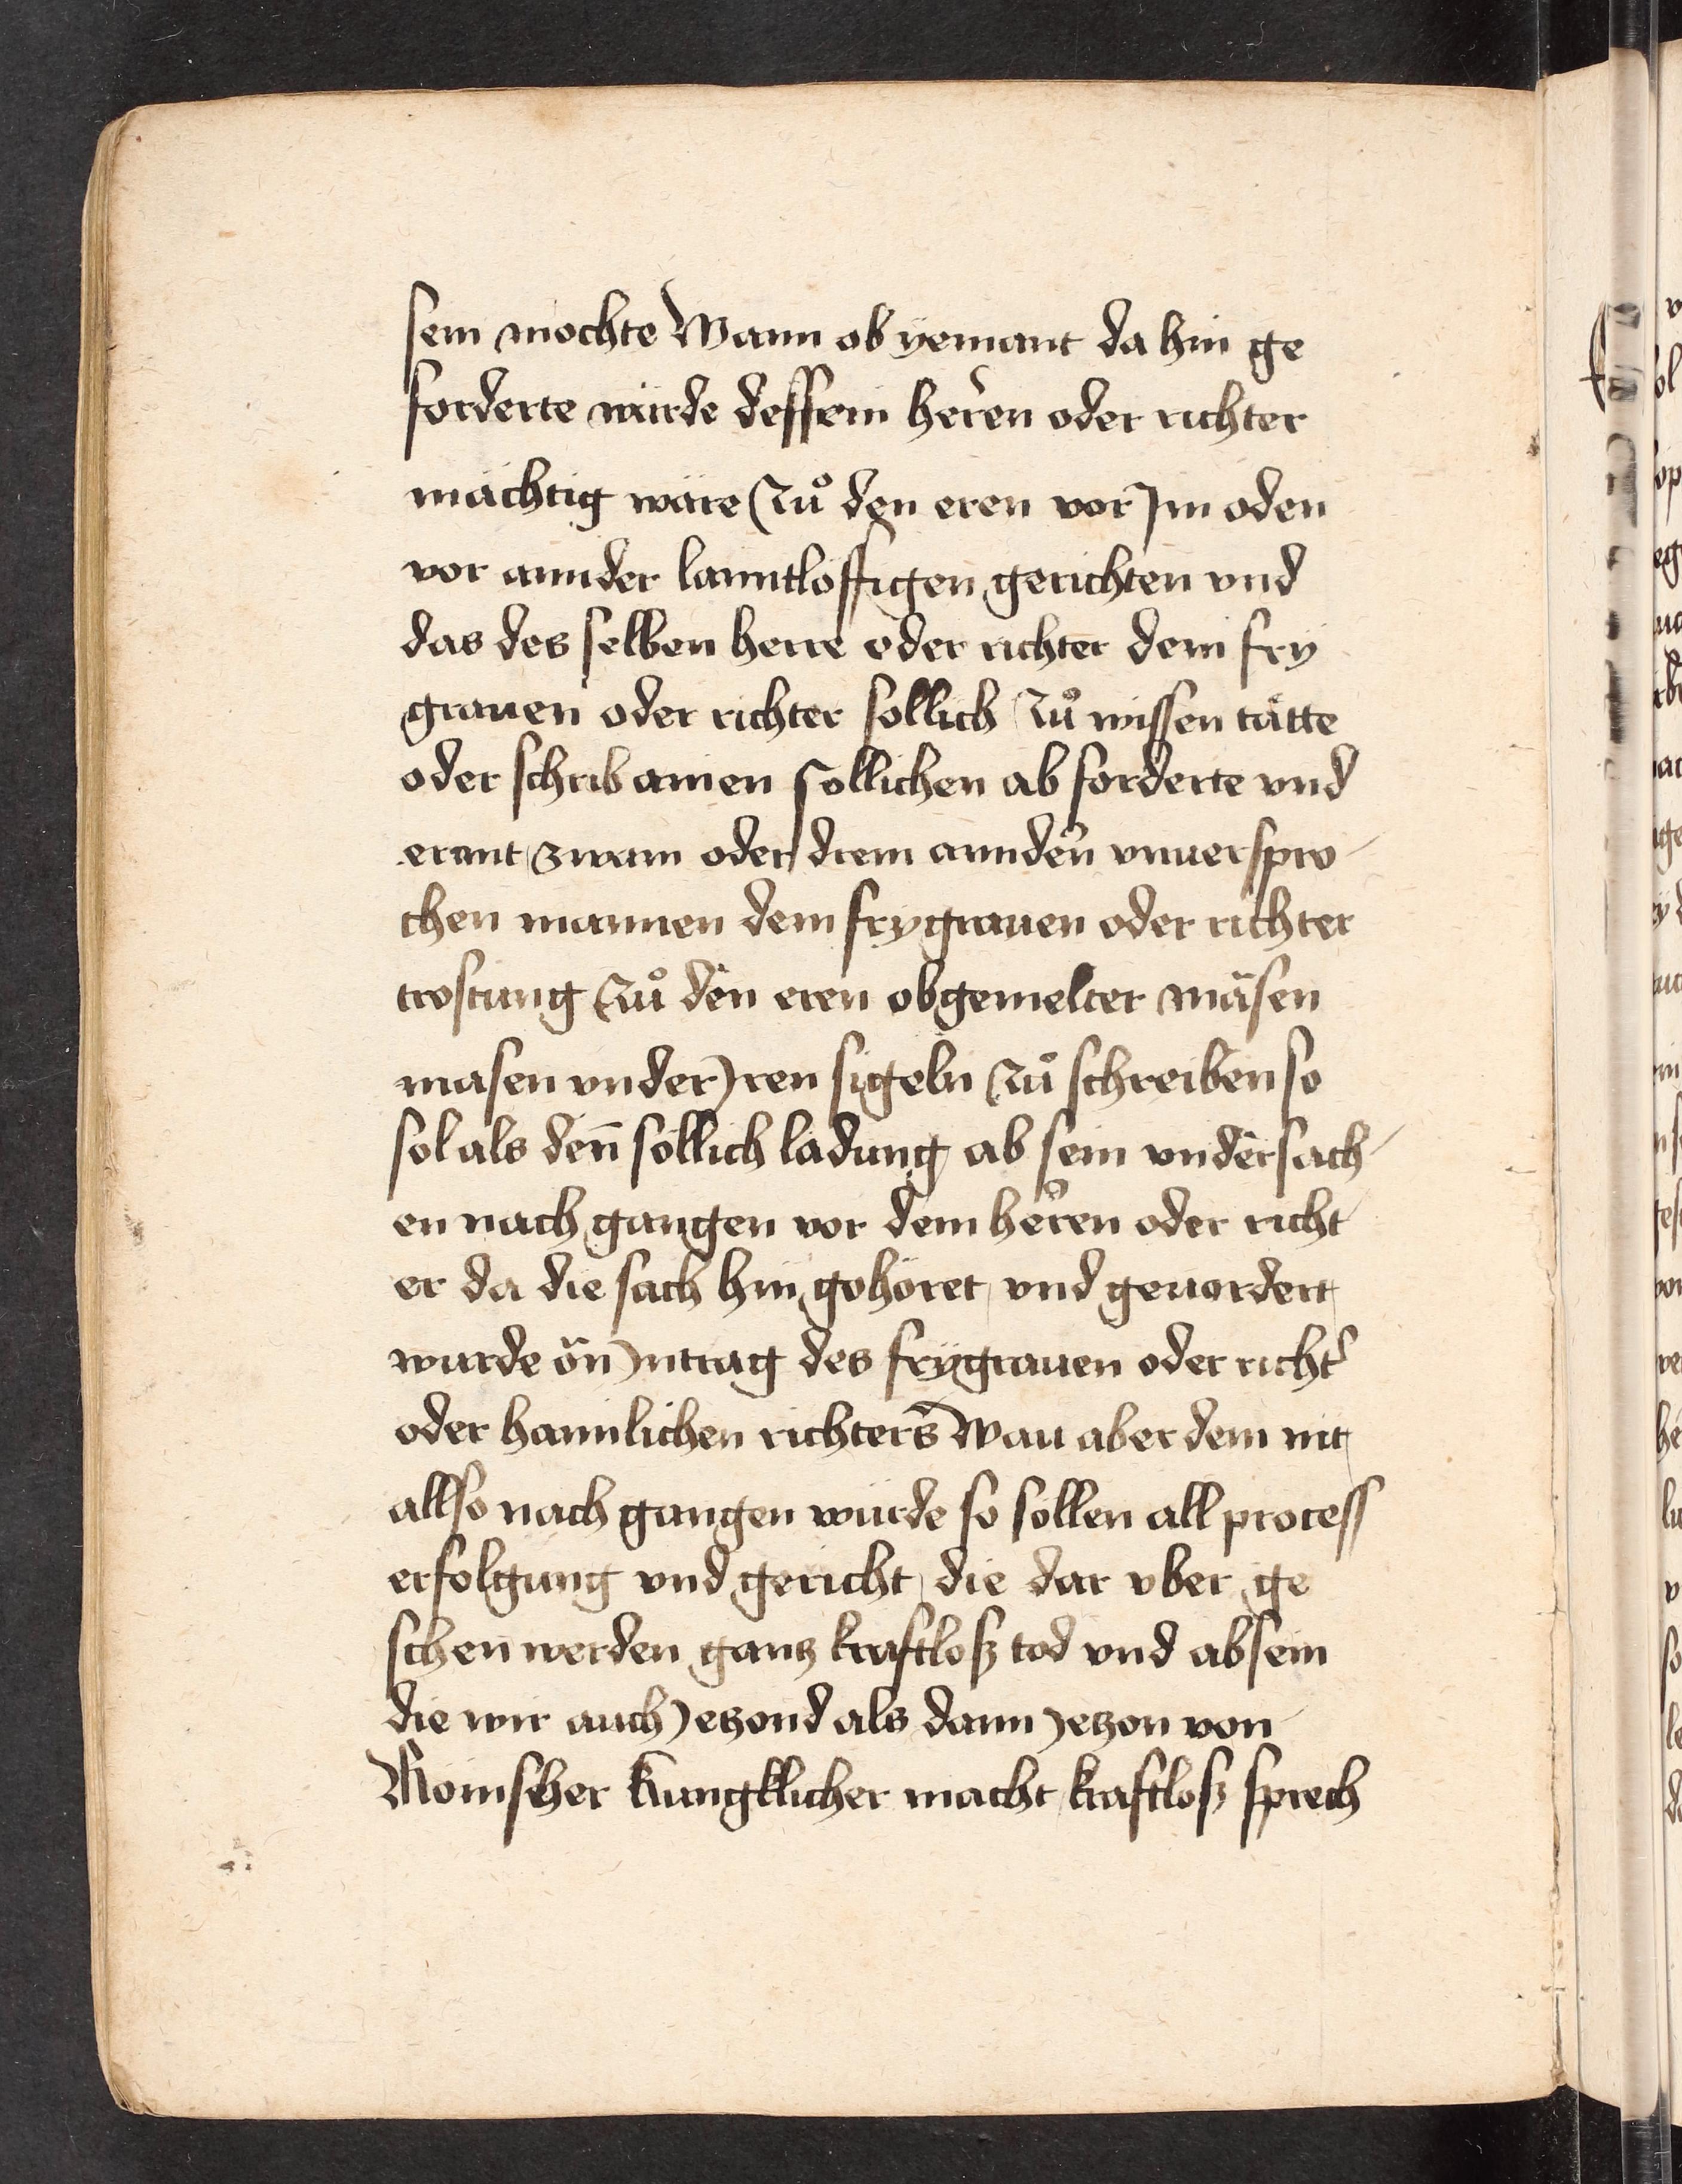 sein mochte Wann ob yemant da hin ge
forderte würde dessein heren oder richter
mächtig wäre Zů den eren vor Jm oden
vor annder lanntloffigen gerichten vnd
das des selben herre oder richter dem fry
grauen oder richter sollich Zů wissen tätte
oder schrib ainen sollichen ab forderte vnd
er mit zwain oder drein annden vnuerspro
chen mannen dem frygrauen oder richter
trostung Zů den eren obgemelter mäsen
masen vnder Jren sigeln Zů schreiben so
sol als den̄ söllich ladung ab sein vnder sach
en nach gangen vor dem heren oder richt
er da die sach hin gohöret vnd geuordert
wurde ön Jntrag des frygrauen oder richt
oder hainlichen richters Wau aber dem nit
allso nach gangen wurde so sollen all process
erfolgung vnd gericht die dar vber ge
schen werden gantz kraftlosz tod vnd absein
die wir auch Jetzond als dann Jetzon von
Romscher kungklicher macht kraftlosz sprech